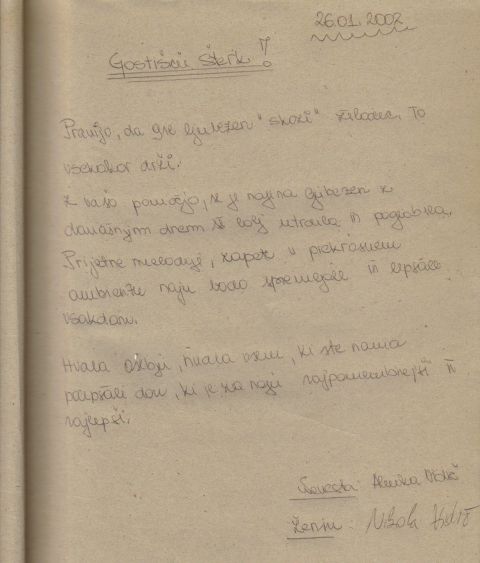 26.01.2002
Gostišču Šterk!
Pravijo, da gre ljubezen "skozi" želodec. To
vsekakor drži.
Z vašo pomočjo, se je najina ljubezen z
današnjim dnem še bolj utrdila in poglobila.
Prijetne melodije, zapete v prekrasnem
ambientu naju bodo spremljale in lepšale
vsakdan.
Hvala osebju, hvala vsem, ki ste nama
polepšali dan, ki je za naju najpomembnejši in
najlepši.
Nevesta:
Ženin: Nikola